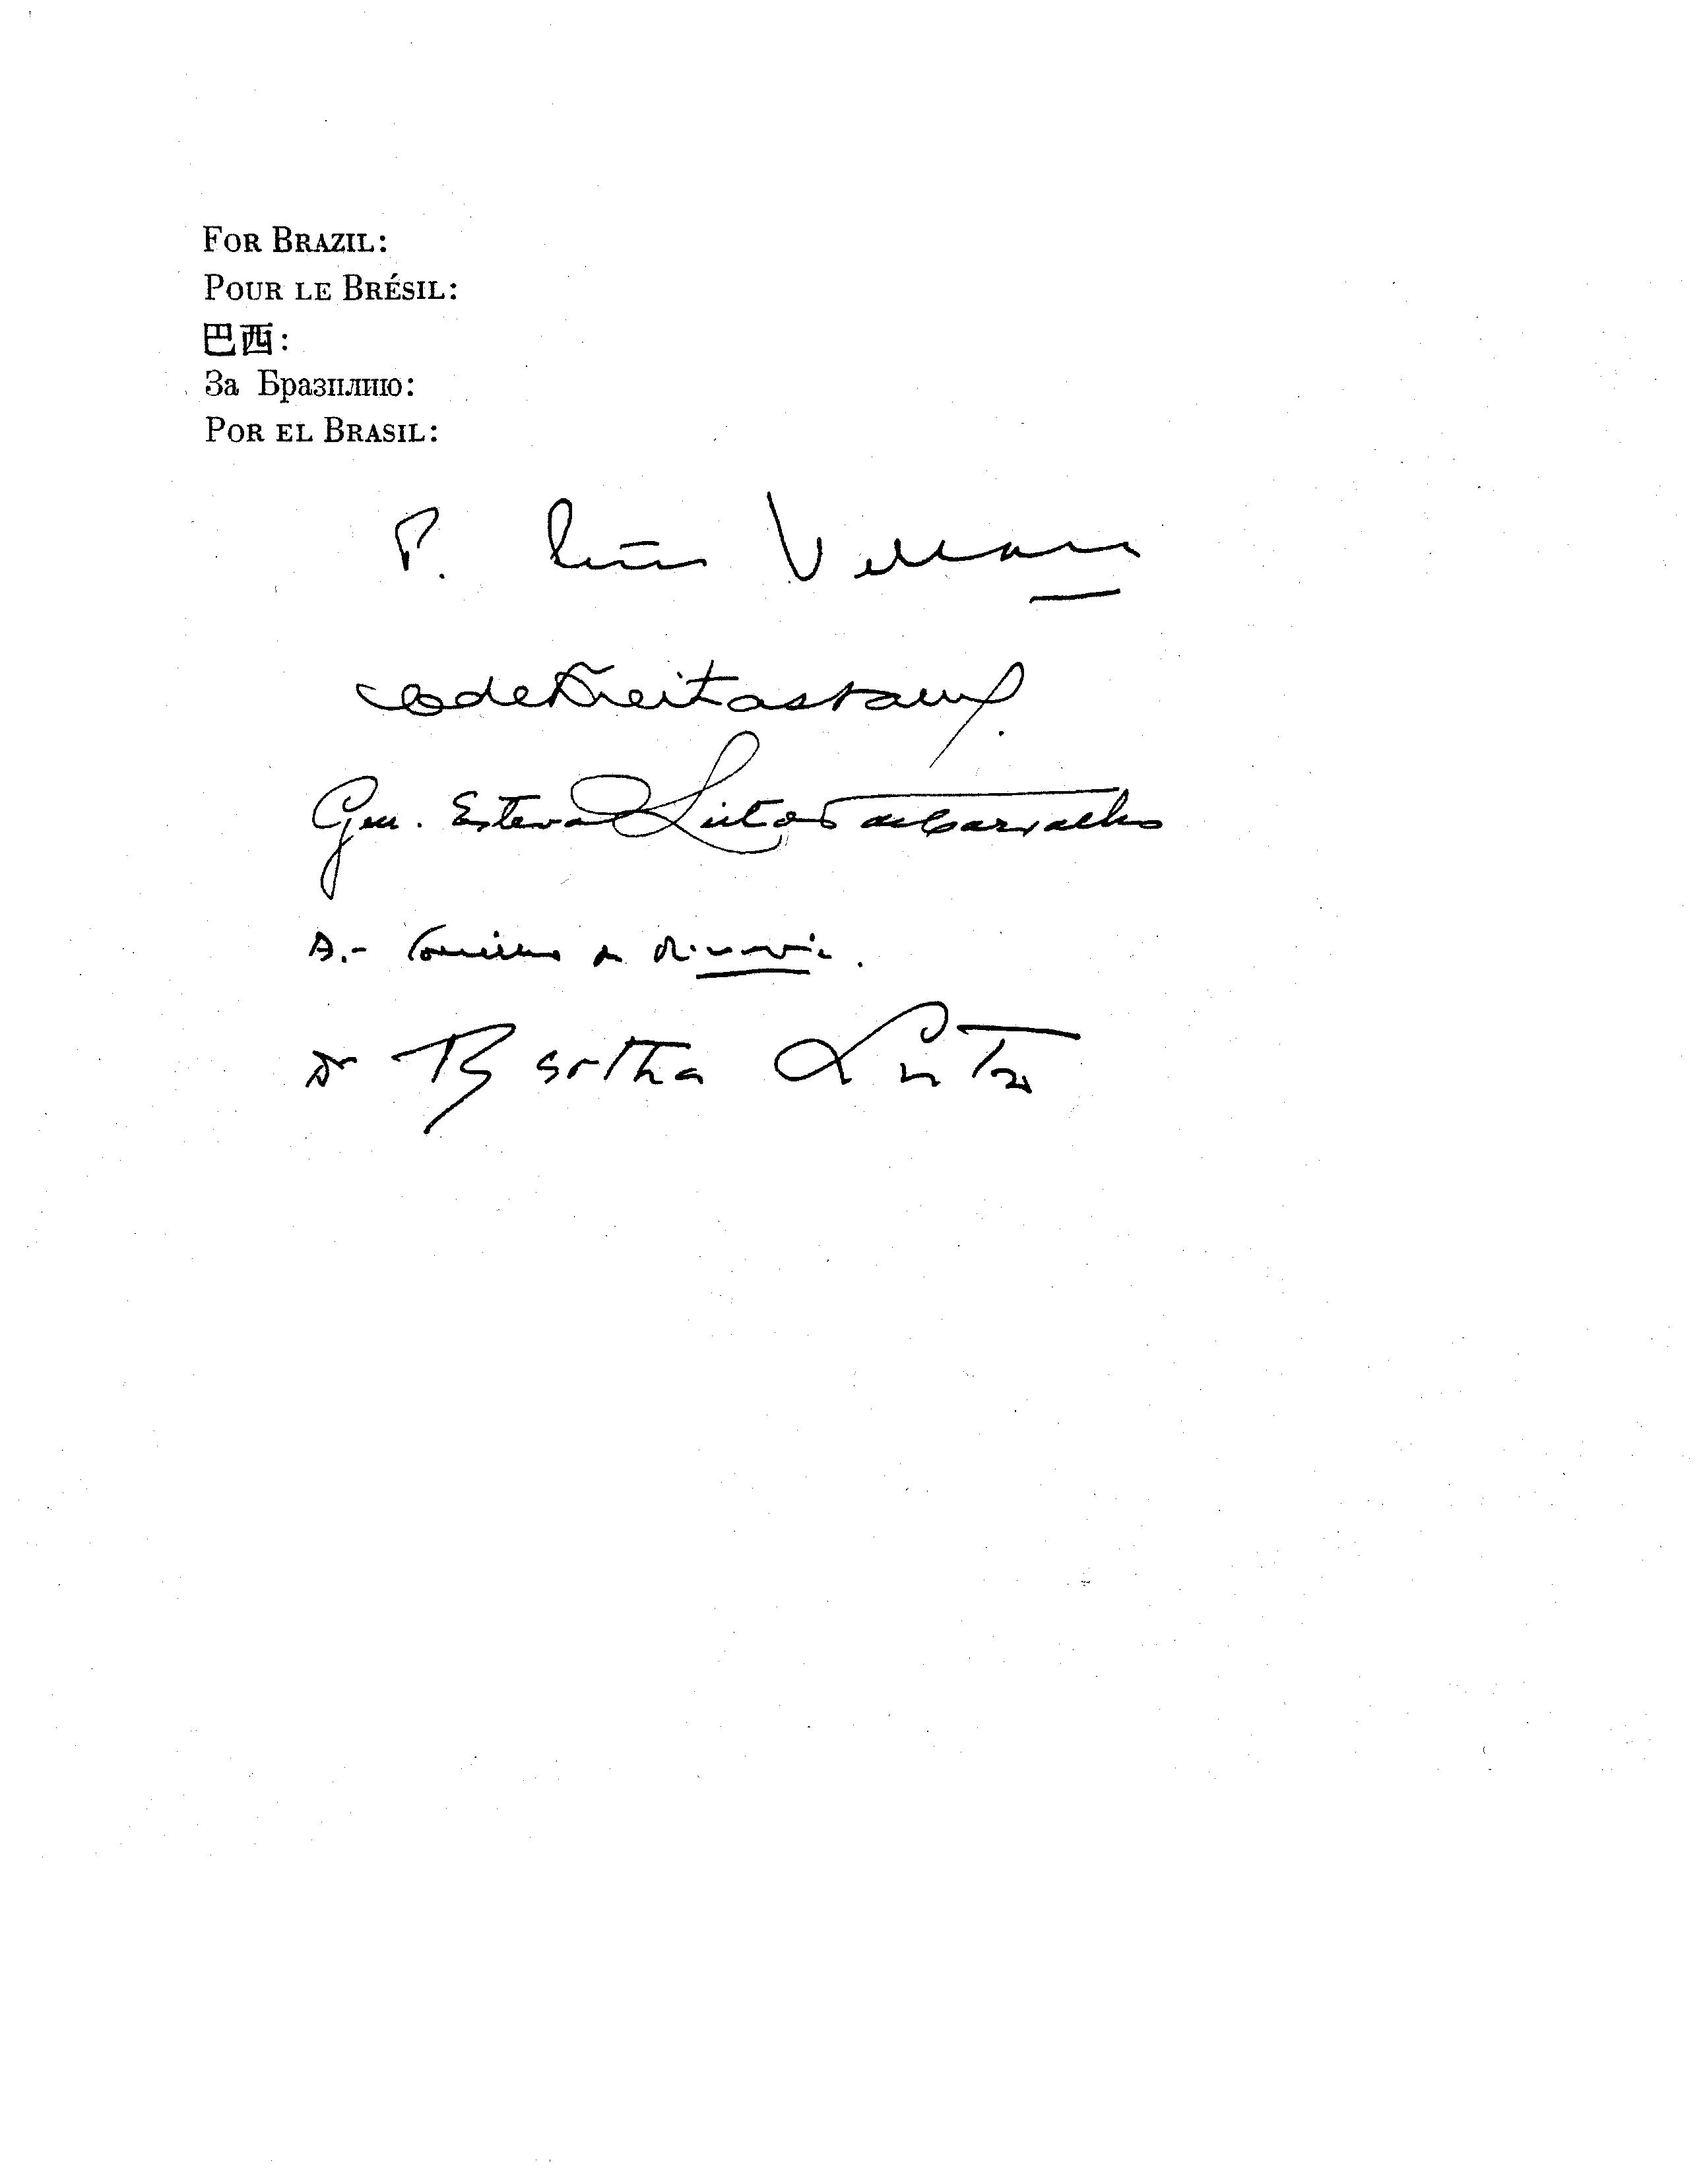 FOR BRAZIL:
POUR LE BRÉSIL:
巴西:
За Бразилию:
POR EL BRASIL:
P. Leão Velloso
C de Freitas Valle
Gen. Estevao Leitao de Carvalho
A.- Camillo de Oliveira.
Dr Bertha Lutz